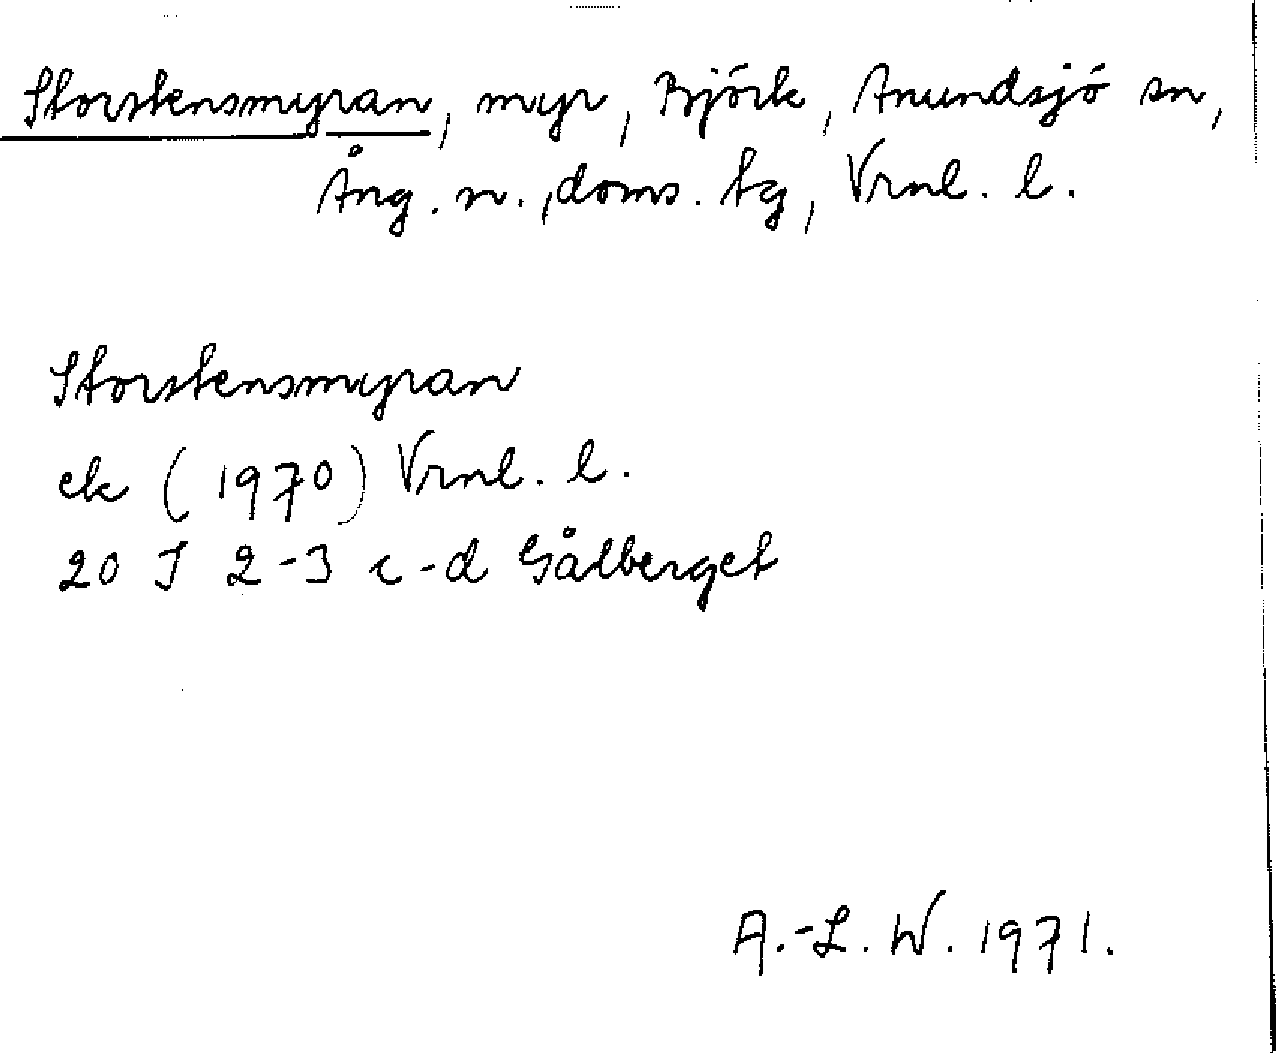 Storstensmyran, myr, Björk, Anundsjö sn,
Ång. n., doms. tg, Vrnl. l.
Storstensmyran
ek (1970) Vrnl. l.
20 J 2-3 c-d Gålberget
A.-L. W. 1971.